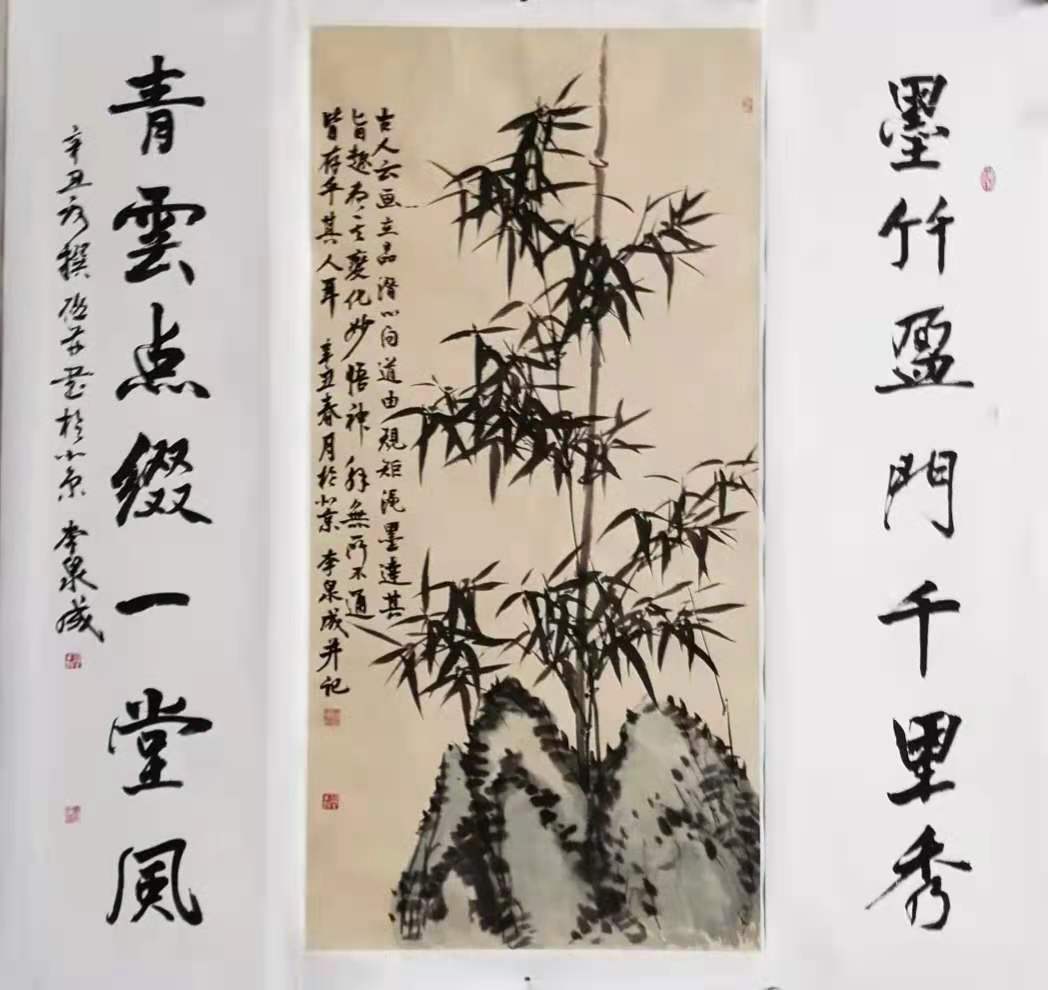 墨竹盈門千里秀
古人云画立品潜心向道由規矩繩墨達其
旨趣而至變化妙悟神解無所不通
皆存乎其人耳 辛丑春月於北京 李泉成并記
青雲点綴一堂風
辛丑秋撰 於北京 李泉成